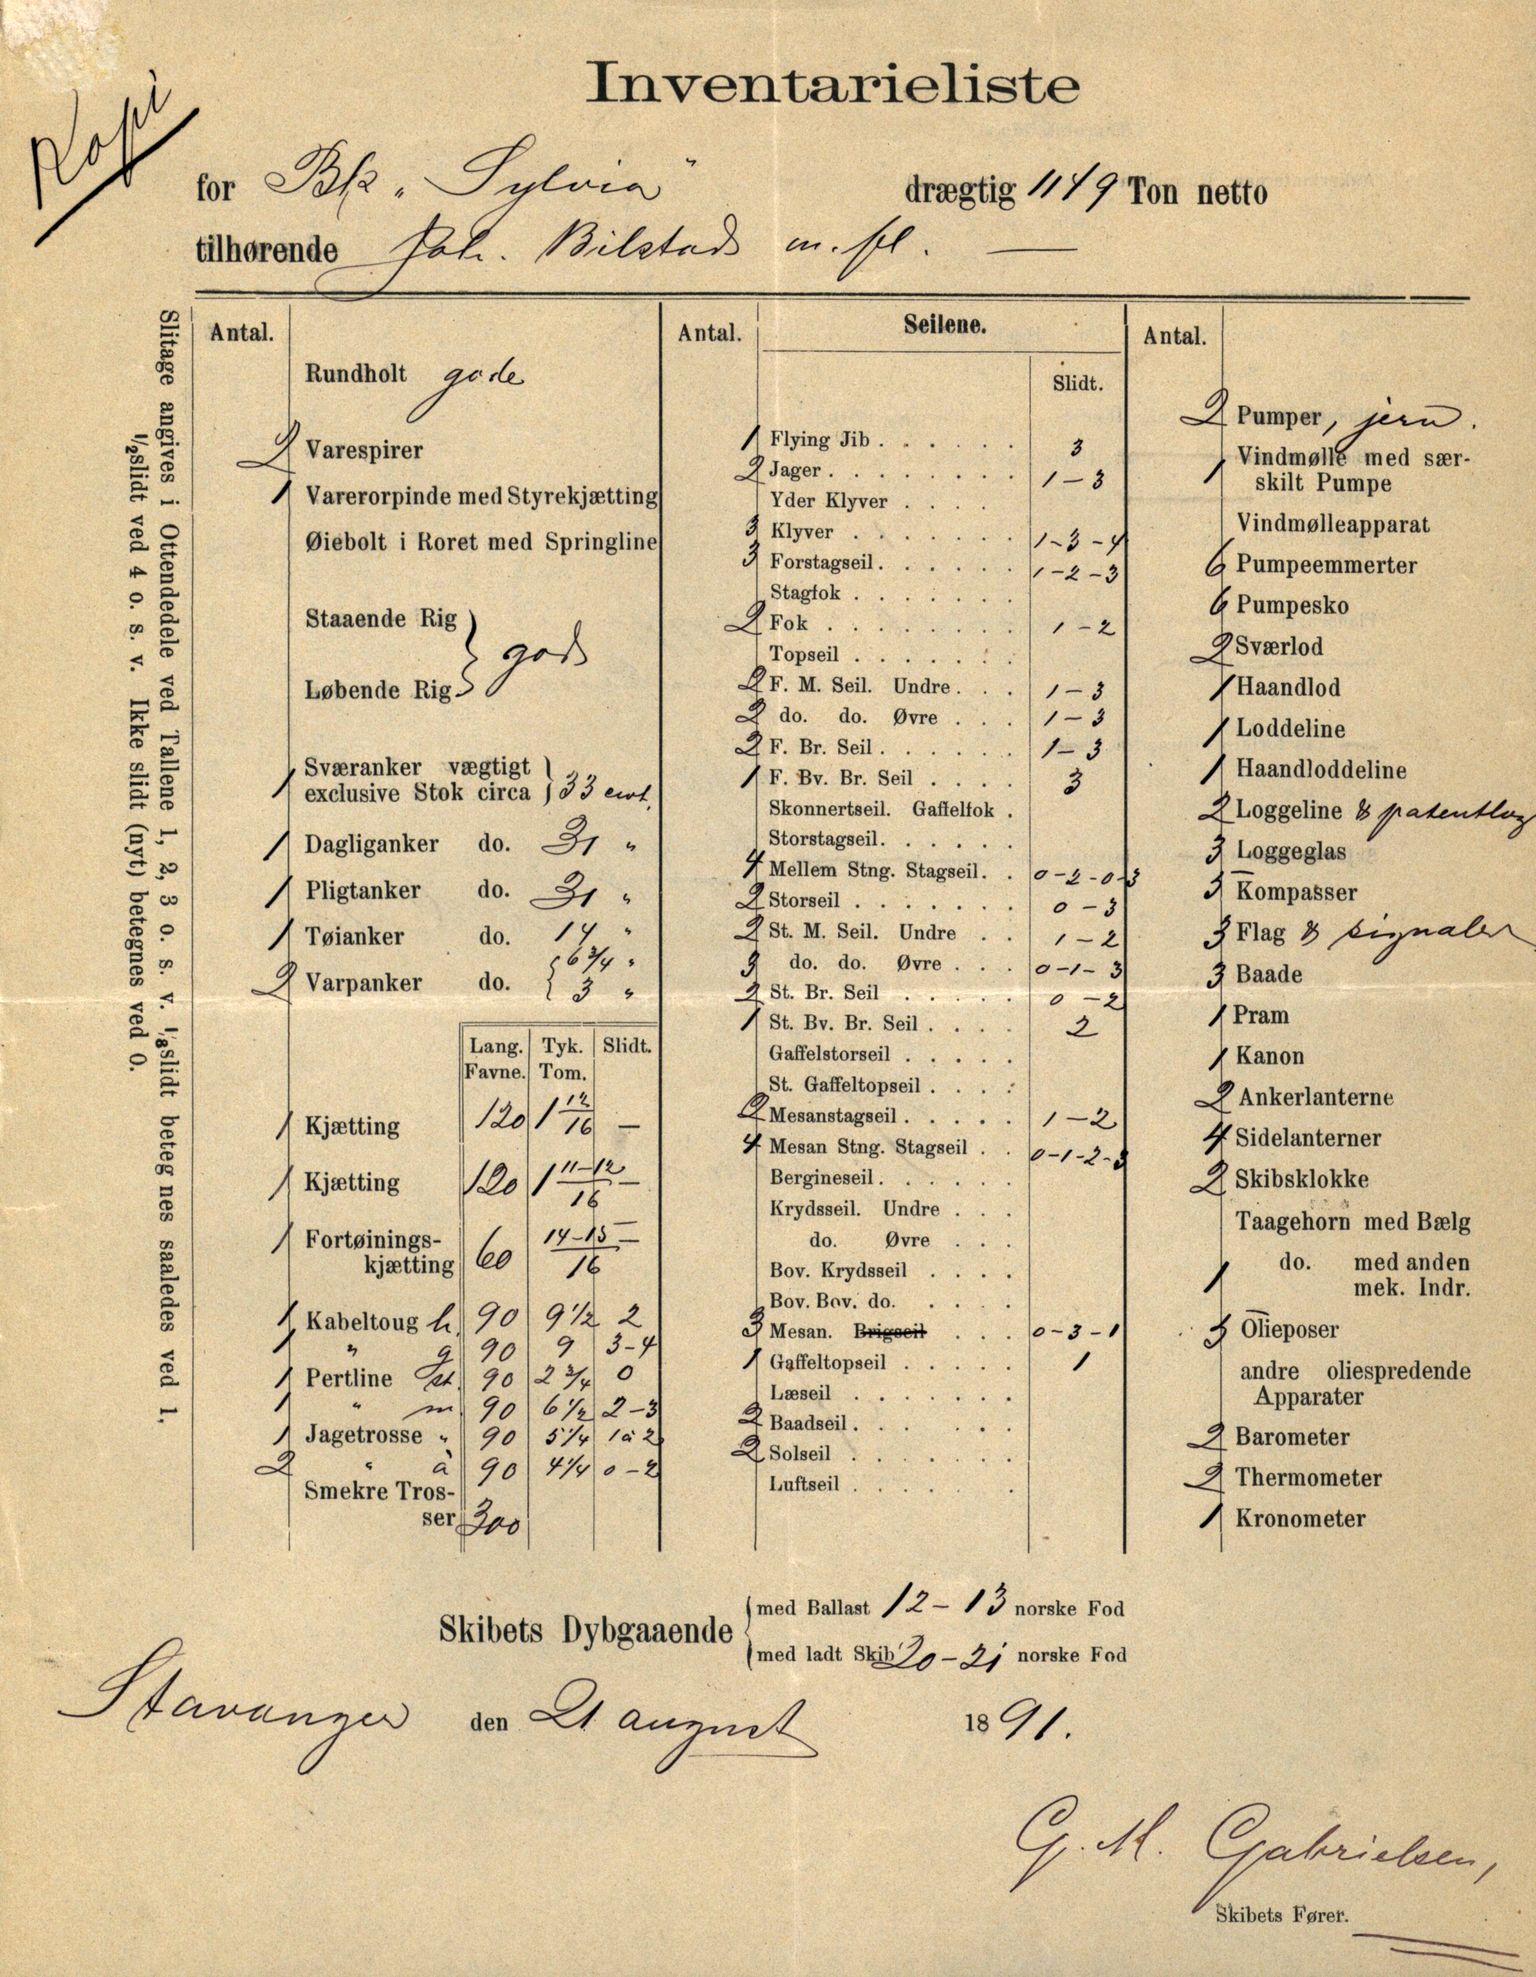 Kopi
Inventarieliste
for Bk „Sylvia" drægtig 1149 Ton netto
tilhørende Joh. Bilstad m. fl.
Slitage angives i Ottendedele ved Tallene 1, 2, 3 o. s. v. 1/8 slidt betegnes saaledes ved 1,
1/2 slidt ved 4 o. s. v. Ikke slidt (nyt) betegnes ved 0.
Antal.
Rundholt gode
2 Varespirer
1 Varerorpinde med Styrekjætting
Øiebolt i Roret med Springline
Staaende Rig
Løbende Rig } god
1 Sværanker vægtigt
exclusive Stok circa } 33 cwt.
1 Dagliganker do. 31 "
1 Pligtanker do. 31 "
1 Tøianker do. 14 "
2 Varpanker do. { 6 3/4 "
3 "
Lang. Tyk. Slidt.
Favne. Tom.
1 Kjætting 120 1 12/16 —
1 Kjætting 120 1 11-12/16 —
1 Fortøinings-
kjætting 60 14-15/16 —
1 Kabeltoug h. 90 9 1/2 2
1 " g 90 9 3-4
1 Pertline st. 90 2 3/4 0
1 " m 90 6 1/2 2-3
1 Jagetrosse " 90 5 1/4 1 à 2
2 " à 90 4 1/4 0-2
Smekre Tros-
ser 300
Antal. Seilene.
Slidt.
1 Flying Jib . . . . . 3
2 Jager . . . . . . . 1-3
Yder Klyver . . . .
3 Klyver . . . . . . 1-3-4
3 Forstagseil . . . . . 1-2-3
Stagfok . . . . . .
2 Fok . . . . . . . 1-2
Topseil . . . . . .
2 F. M. Seil. Undre . . . 1-3
2 do. do. Øvre . . . 1-3
2 F. Br. Seil . . . . . 1-3
1 F. Bv. Br. Seil . . . . 3
Skonnertseil. Gaffelfok .
Storstagseil . . . . .
4 Mellem Stng. Stagseil . . 0-2-0-3
2 Storseil . . . . . . 0-3
2 St. M. Seil. Undre . . 1-2
3 do. do. Øvre . . . 0-1-3
2 St. Br. Seil . . . . . 0-2
1 St. Bv. Br. Seil . . . . 2
Gaffelstorseil . . . . .
St. Gaffeltopseil . . . .
2 Mesanstagseil . . . . . 1-2
4 Mesan Stng. Stagseil . . 0-1-2-3
Bergineseil . . . . . .
Krydsseil. Undre . . .
do. Øvre . . .
Bov. Krydsseil . . . .
Bov. Bov. do. . . . .
3 Mesan. Brigseil . . . 0-3-1
1 Gaffeltopseil . . . . . 1
Læseil . . . . . . .
2 Baadseil . . . . . .
2 Solseil . . . . . . .
Luftseil . . . . . .
Antal.
2 Pumper, jern.
1 Vindmølle med sær-
skilt Pumpe
Vindmølleapparat
6 Pumpeemmerter
6 Pumpesko
2 Sværlod
1 Haandlod
1 Loddeline
1 Haandloddeline
2 Loggeline & patentlog
3 Loggeglas
3 Kompasser
3 Flag & signaler
3 Baade
1 Pram
1 Kanon
2 Ankerlanterne
4 Sidelanterner
2 Skibsklokke
Taagehorn med Bælg
1 do. med anden
mek. Indr.
3 Olieposer
andre oliespredende
Apparater
2 Barometer
2 Thermometer
1 Kronometer
Skibets Dybgaaende
med Ballast 12-13 norske Fod
med ladt Skib 20-21 norske Fod
Stavanger den 21 august 1891.
G. M. Gabrielsen,
Skibets Fører.